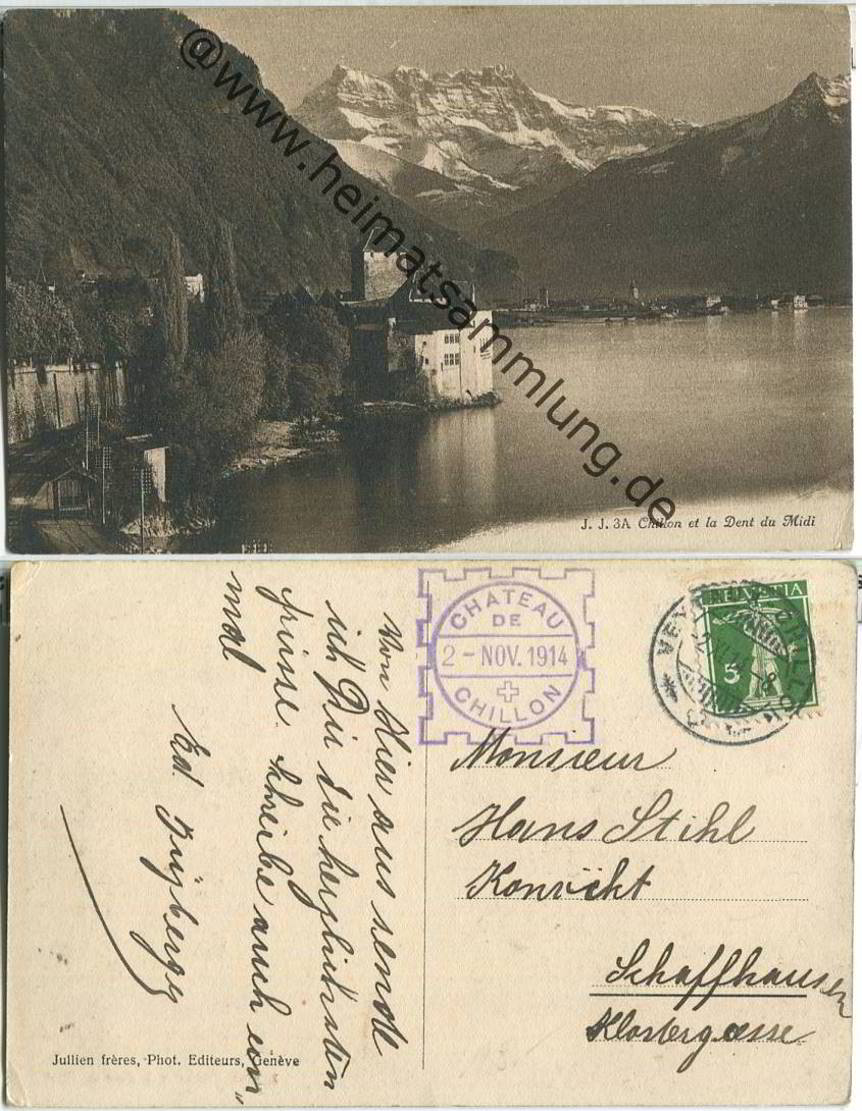 @www.heimatsammlung.de
J. J. 3A Chillon et la Dent du Midi
CHATEAU
DE
2 - NOV. 1914
CHILLON
HELVETIA
5
Monsieur
Hans Stihl
Konvikt
Schaffhausen
Klostergasse
Von Hier aus sende
ich Dir die herzlichsten
Grüsse. Schreibe auch ein
mal
Ed.
Jullien frères, Phot. Editeurs, Genève